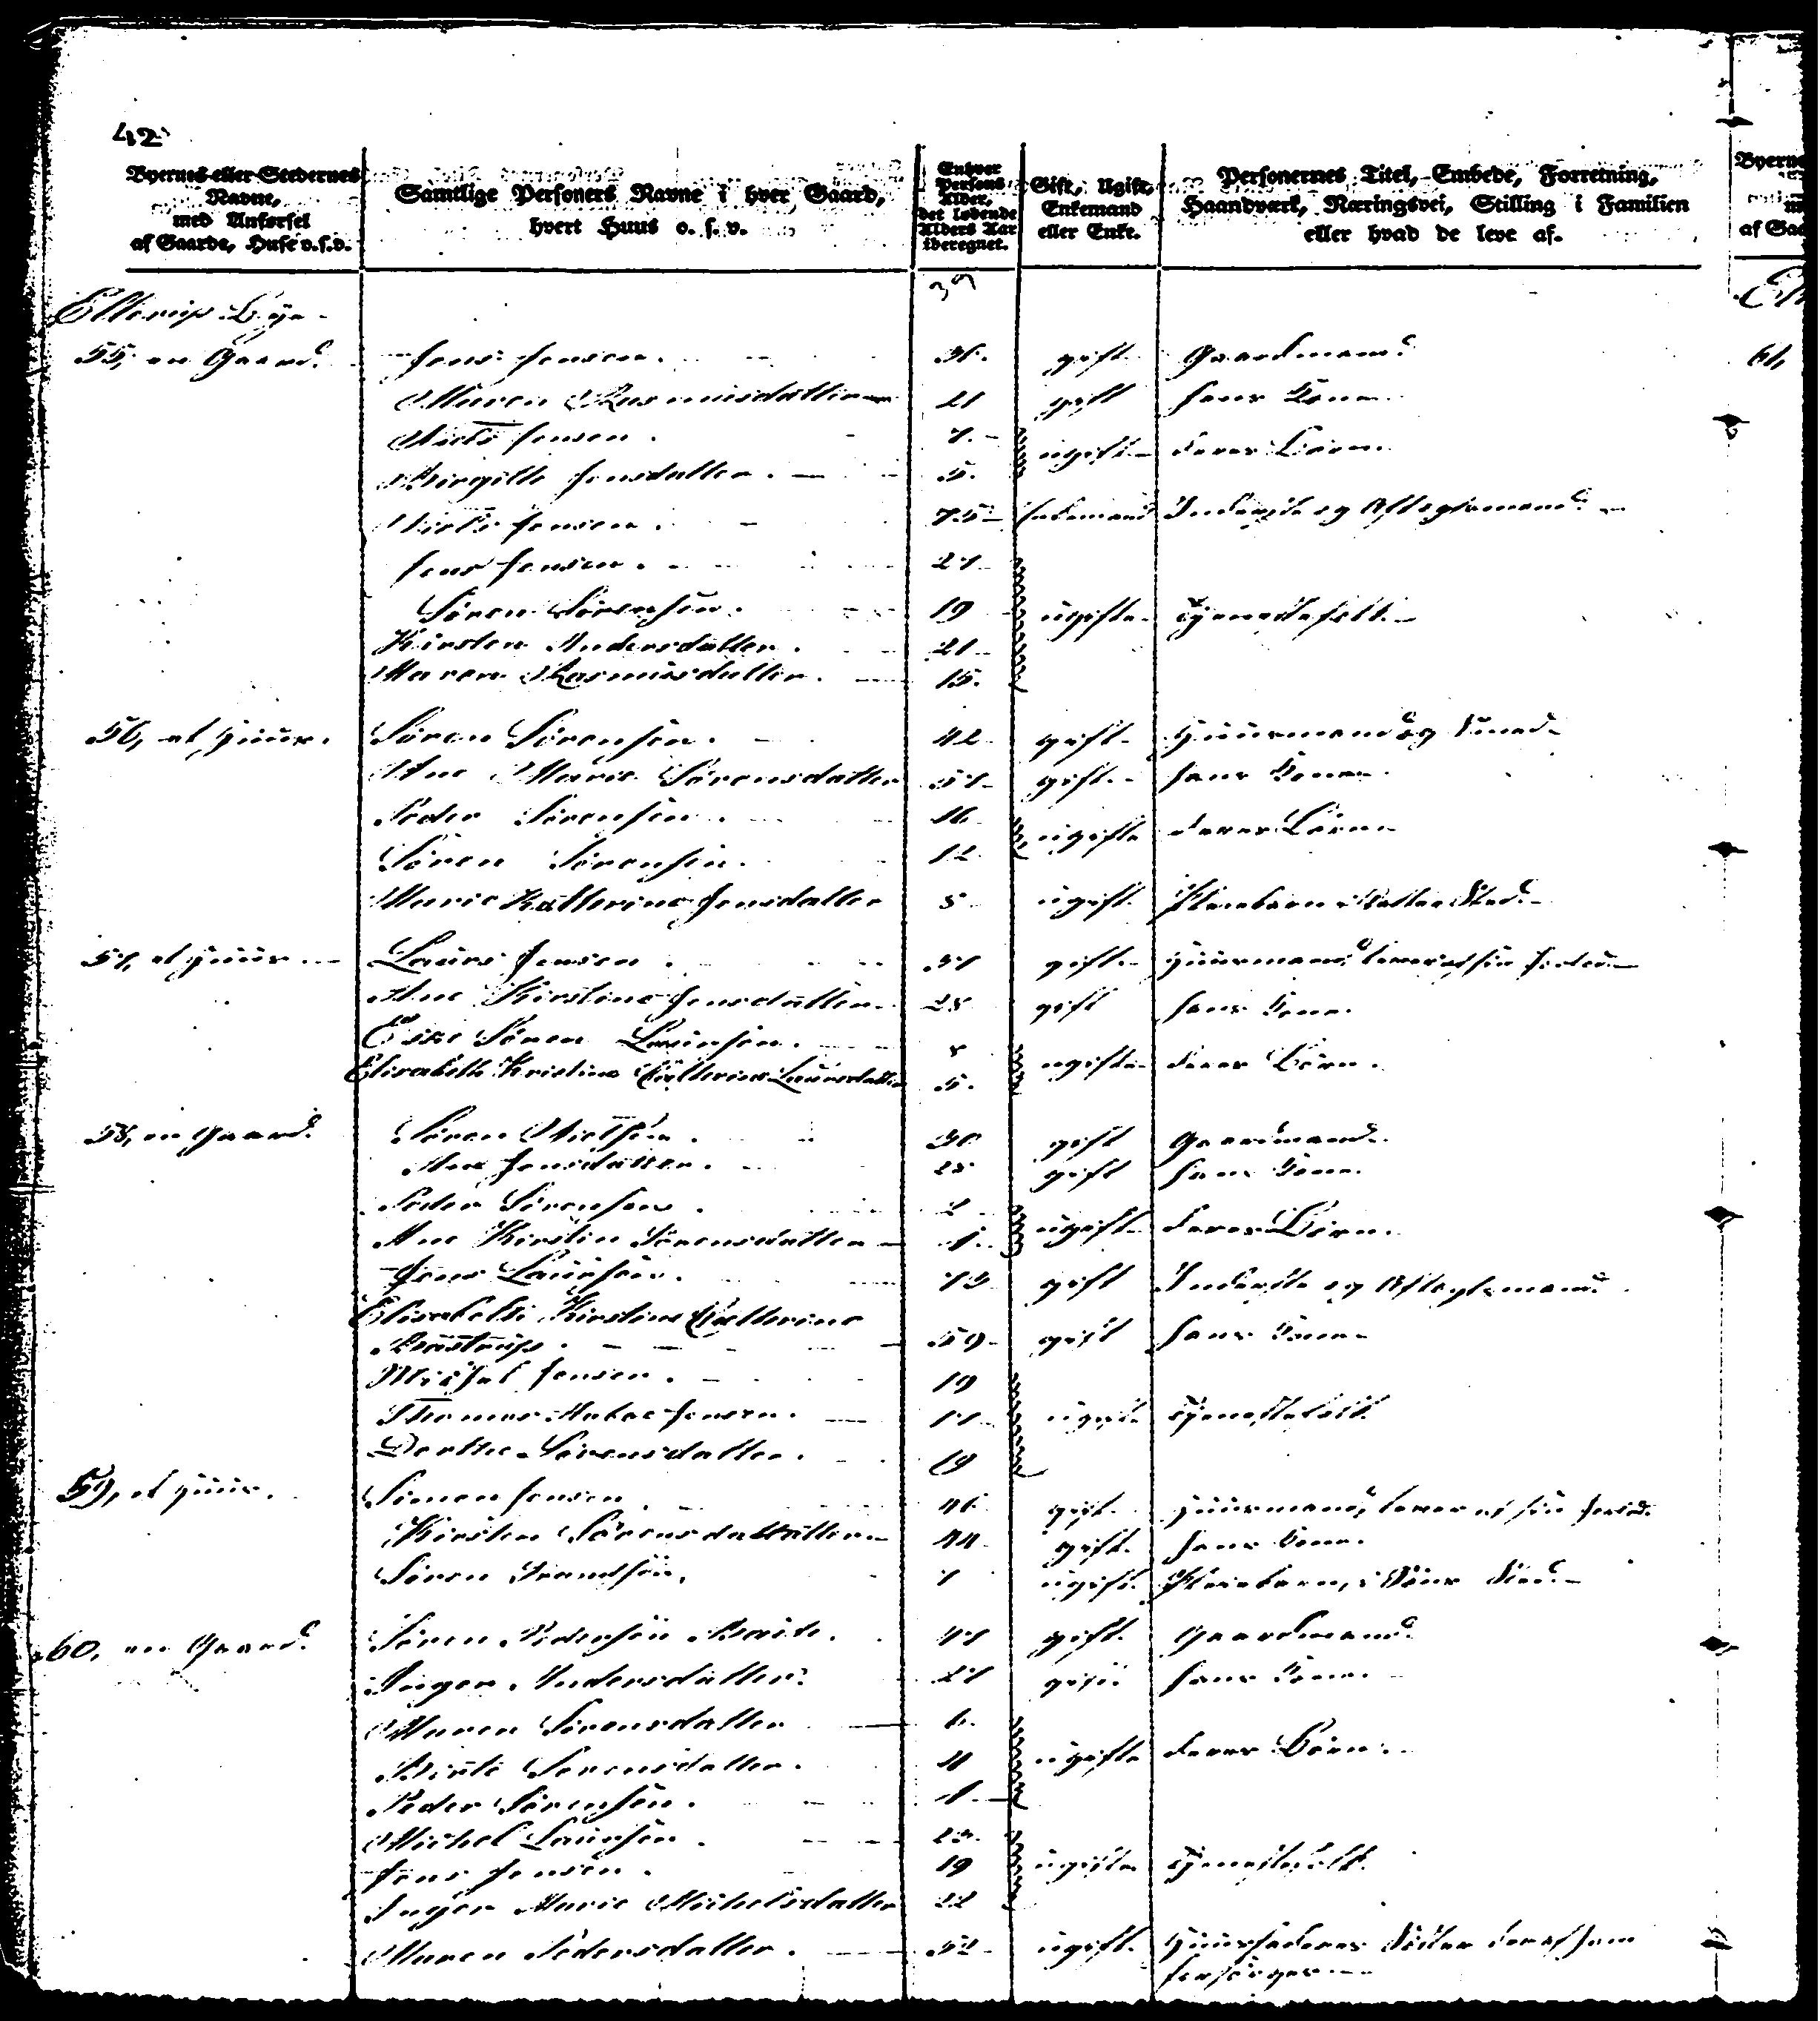 42
Byernes eller Stedernes Navne, med Anførsel af Gaarde, Huse o.s.v.
Samtlige Personers Navne i hver Gaard, hvert Huus o. s. v.
Enhver Persons Alder, det løbende Alders Aar iberegnet.
Gift, Ugift, Enkemand eller Enke.
Personernes Titel, Embede, Forretning, Haandværk, Næringsvei, Stilling i Familien eller hvad de leve af.
39
Ellerup Bye
55, en Gaard. Jens Jensen. gift Gaardmand
Maren Rasmusdatter gift hans Kone
Niels Jensen. 7. ugift deres Børn.
Birgitte Jensdatter. 5.
Niels Jensen. 75 Enkemand Inderste og Aftægtsmand
Jens Jensen. 27
Søren Sørensen. 19 ugifte Tjenestefolk.
Kirsten Andersdatter. 21
Maren Rasmusdatter. 15.
56, et Huus. Søren Sørensen. 42 gift Huusmand og Smed
Ane Marie Sørensdatter 57 gift. hans Kone.
Peder Sørensen. 16 ugifte deres Børn
Søren Sørensen. 12
Marie Kathrine Jensdatter ugift Pleiebarn i Datters Sted
57, et Huus Laurs Jensen. 37 gift Huusmand, lever af sin Jordlod
Ane Kirstine Jensdatter. 28 gift hans Kone.
Søren Laursen. 8 ugifte deres Børn.
Elisabeth Kristine Cathrine Laursdatter 5.
58, en Gaard. Søren Nielsen. 30 gift Gaardmand.
Ane Jensdatter. gift hans Kone.
Peder Sørensen. 2 ugift deres Børn.
Ane Kirstin Sørensdatter 1.
Jens Laursen. gift Inderste og Aftægtsmand.
Elisabeth Kirstine Cathrine
59 gift hans Kone
Michel Jensen. 19
Thomas Jensen. ugifte Tjenestefolk
Dorthe Sørensdatter. 19
59, et Huus. Simon Jensen. 46 gift. Huusmand, lever af sin Jordlod.
Kirsten Sørensdatter 44 gift. hans Kone.
Søren 7 ugift. Pleiebarn, i Søns Sted.
60, en Gaard. Søren Pedersen 47 gift. Gaardmand.
Inger Andersdatter. 27 gift hans Kone.
Maren Sørensdatter 6.
Sørensdatter. 4 ugifte deres Børn.
Peder Sørensen. 1
Michel Laursen. 23.
Jens Jensen. 19 ugifte Tjenestefolk.
Inger Marie Michelsdatter 22
Maren Pedersdatter. 52 ugift. Huusfaderens Søster som
forsørges
Byerne
af Gaa
61,